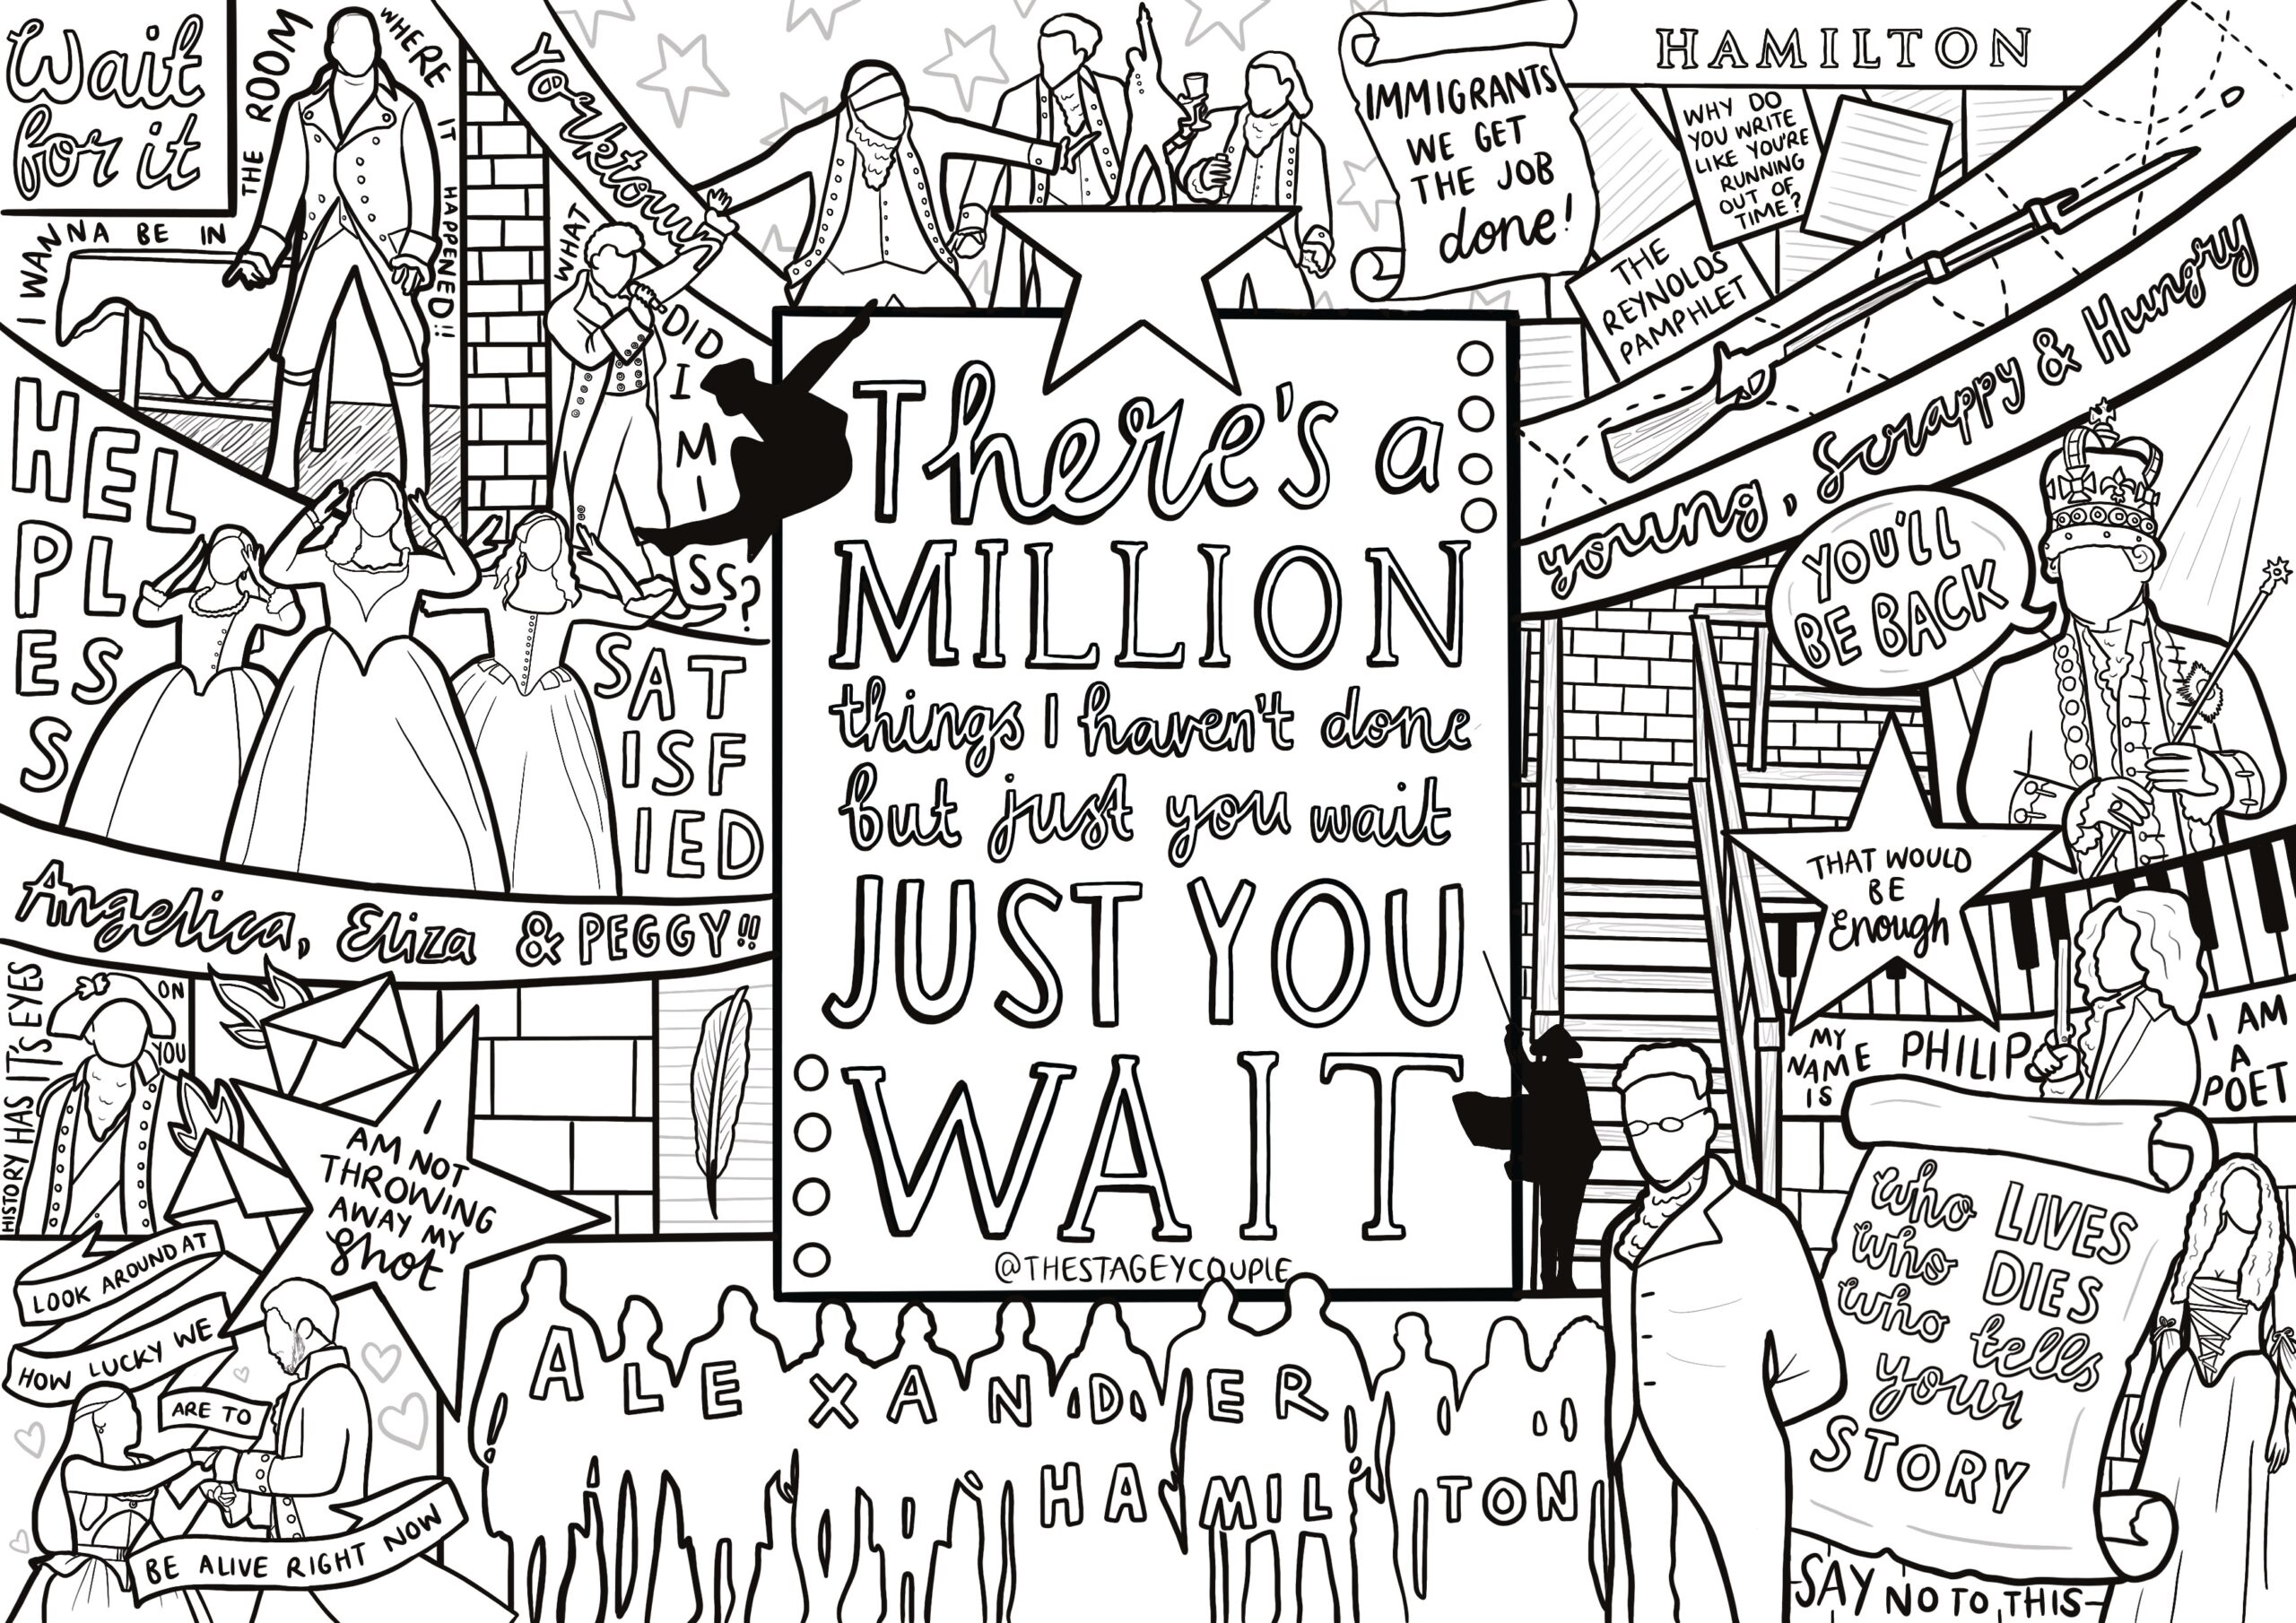 Wait
for it
I WANNA BE IN
THE ROOM
WHERE IT
HAPPENED!!
Yorktown
WHAT
DID
I
MI
SS?
IMMIGRANTS
WE GET
THE JOB
done!
HAMILTON
WHY DO
YOU WRITE
LIKE YOU'RE
RUNNING
OUT OF
TIME?
THE
REYNOLDS
PAMPHLET
young, Scrappy & Hungry
YOU'LL
BE BACK
HEL
PL
ES
S
SAT
ISF
IED
Angelica, Eliza & PEGGY!!
There's a
MILLION
things I haven't done
but just you wait
JUST YOU
WAIT
@THESTAGEYCOUPLE
THAT WOULD
BE
Enough
MY
NAME
IS
PHILIP
I AM
A
POET
HISTORY HAS IT'S EYES
ON
YOU
I
AM NOT
THROWING
AWAY MY
Shot
LOOK AROUND AT
HOW LUCKY WE
ARE TO
BE ALIVE RIGHT NOW
ALEXANDER
HAMILTON
who LIVES
who DIES
who tells
your
STORY
SAY NO TO THIS